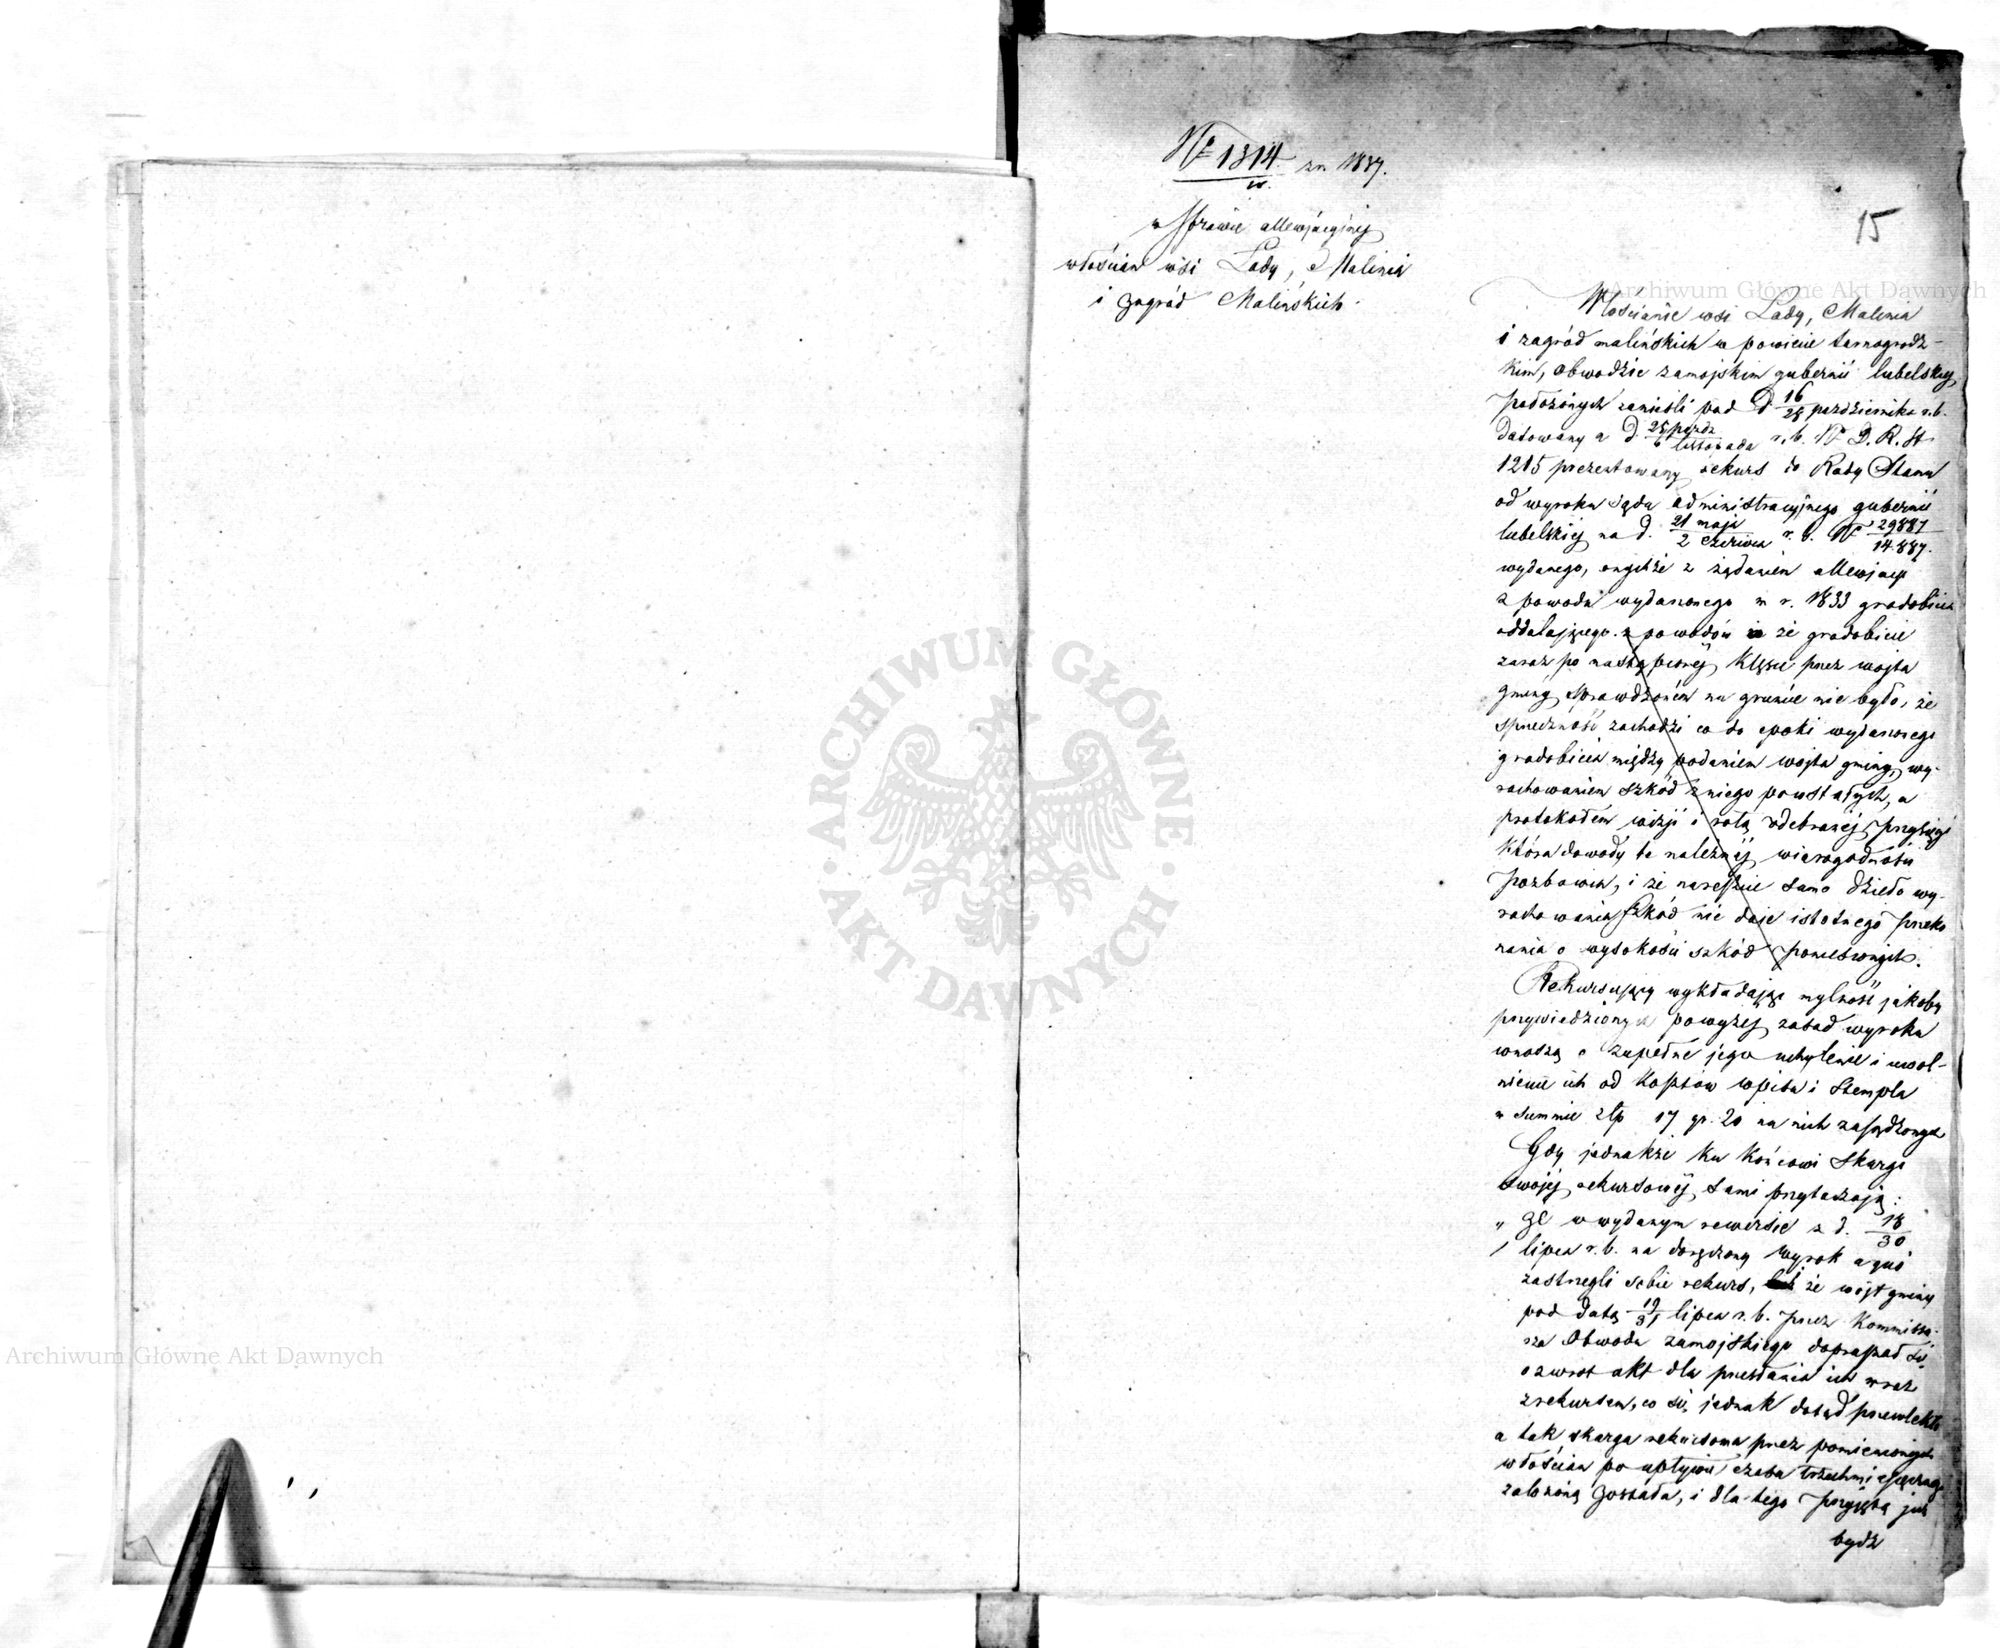 № 1314 zr. 1837.
w Sprawie allewjacyjnej
włościan wsi Lady, Malinia
i zagród Malińskich.
15
Włościanie wsi Lady, Malinia
i zagród malińskich w powiecie tarnogrodz-
kim, obwodzie zamojskim gubernii lubelskiej,
położonych zanieśli pod d. 16/28 października r. b.
datowany a d. 25 paźdz/6 listopada r. b. № D. R. St.
1215 prezentowany rekurs do Rady Stanu
od wyroku sądu administracyjnego gubernii
lubelskiej na d. 21 maja/2 czerwca r. b. № 29887/14.887.
wydanego, onychże z żądaniem allewjacji
z powodu wydarzonego w r. 1833 gradobicia
oddalającego z powodów że gradobicie
zaraz po nastąpionej klęsce przez wójta
gminy sprawdzoném na gruncie nie było, że
sprzeczność zachodzi co do epoki wydarzonego
gradobicia między podaniem wójta gminy, wy-
rachowaniem szkód z niego powstałych, a
protokołem wizji i rotą odebranej przysięgi
która dowody te należnéj wiarogodności
pozbawia, i że nareszcie samo dzieło wy-
rachowania szkód nie daje istotnego przeko
nania o wysokości szkód poniesionych.
Rekursujący wykładając mylność jakoby
przywiedzionych powyżej zasad wyroku
wnoszą o zupełne jego uchylenie i uwol-
nienie ich od kosztów wpisu i stempla
w summie złp 17 gr. 20 na nich zasądzonych
Gdy jednakże ku końcowi skargi
swojej rekursowéj sami przytaczają:
„ że w wydanym rewersie z d. 18/30
„ lipca r. b. na doręczony wyrok
zastrzegli sobie rekurs, że wójt gminy
pod datą 19/31 lipca r. b. przez Kommissa-
rza Obwodu zamojskiego dopraszał się
o zwrot akt dla przesłania ich wraz
z rekursem, co się jednak dotąd przewlekło
a tak skarga rekursowa przez pomienionych
włościan po upływie czasu trzechmiesięcznego
założoną została, i dla tego przyjętą już
bydź
Archiwum Główne Akt Dawnych
Archiwum Główne Akt Dawnych
ARCHIWUM GŁÓWNE AKT DAWNYCH